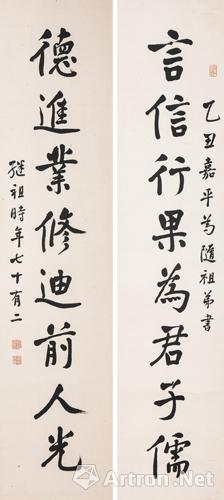 言信行果為君子儒
乙丑嘉平為隨祖弟書
德進業修迪前人光
继祖時年七十有二
Artron.Net